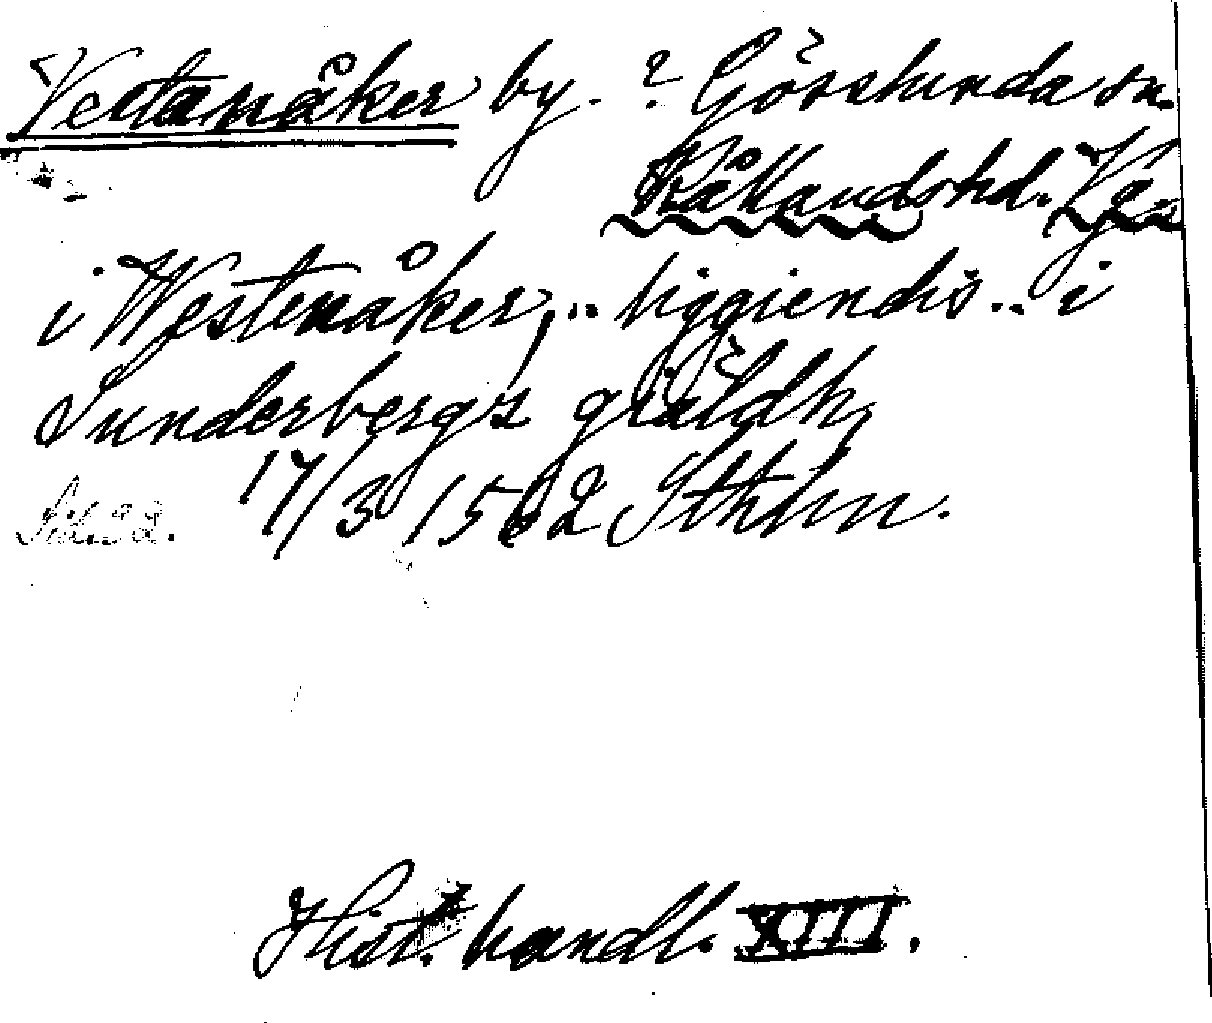 Vestanåker by. ? Gösslunda sn.
Kållands hd. Vg.
i Westenåker, .. liggiendis .. i
Sunderbergs giäldh,
17/3 1562 Sthlm.
Hist. handl. XIII.